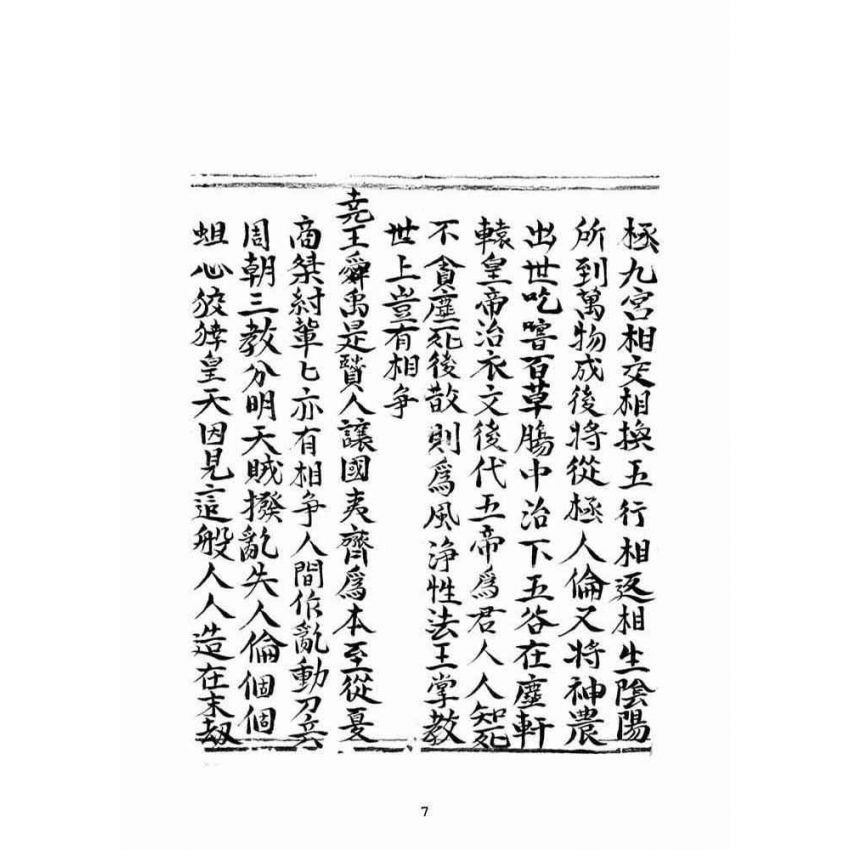 極九宮相交相換五行相返相生陰陽
所到萬物成後將從極人倫又將神農
出世吃嘗百草腸中治下五谷在塵軒
轅皇帝治衣文後代五帝為君人人知死
不貪塵死後散則為風淨性法王掌教
世上豈有相爭
堯王舜禹是賢人讓國夷齊為本至從夏
商桀紂輩匕亦有相爭人間作亂動刀兵
周朝三教分明天賊撥亂失人倫個個
蛆心狡獐皇天因見這般人人造在末劫
7